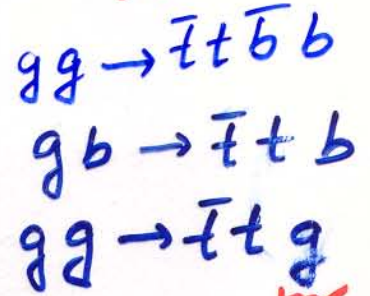 gg → t̄ t b̄ b
gb → t̄ t b
gg → t̄ t g